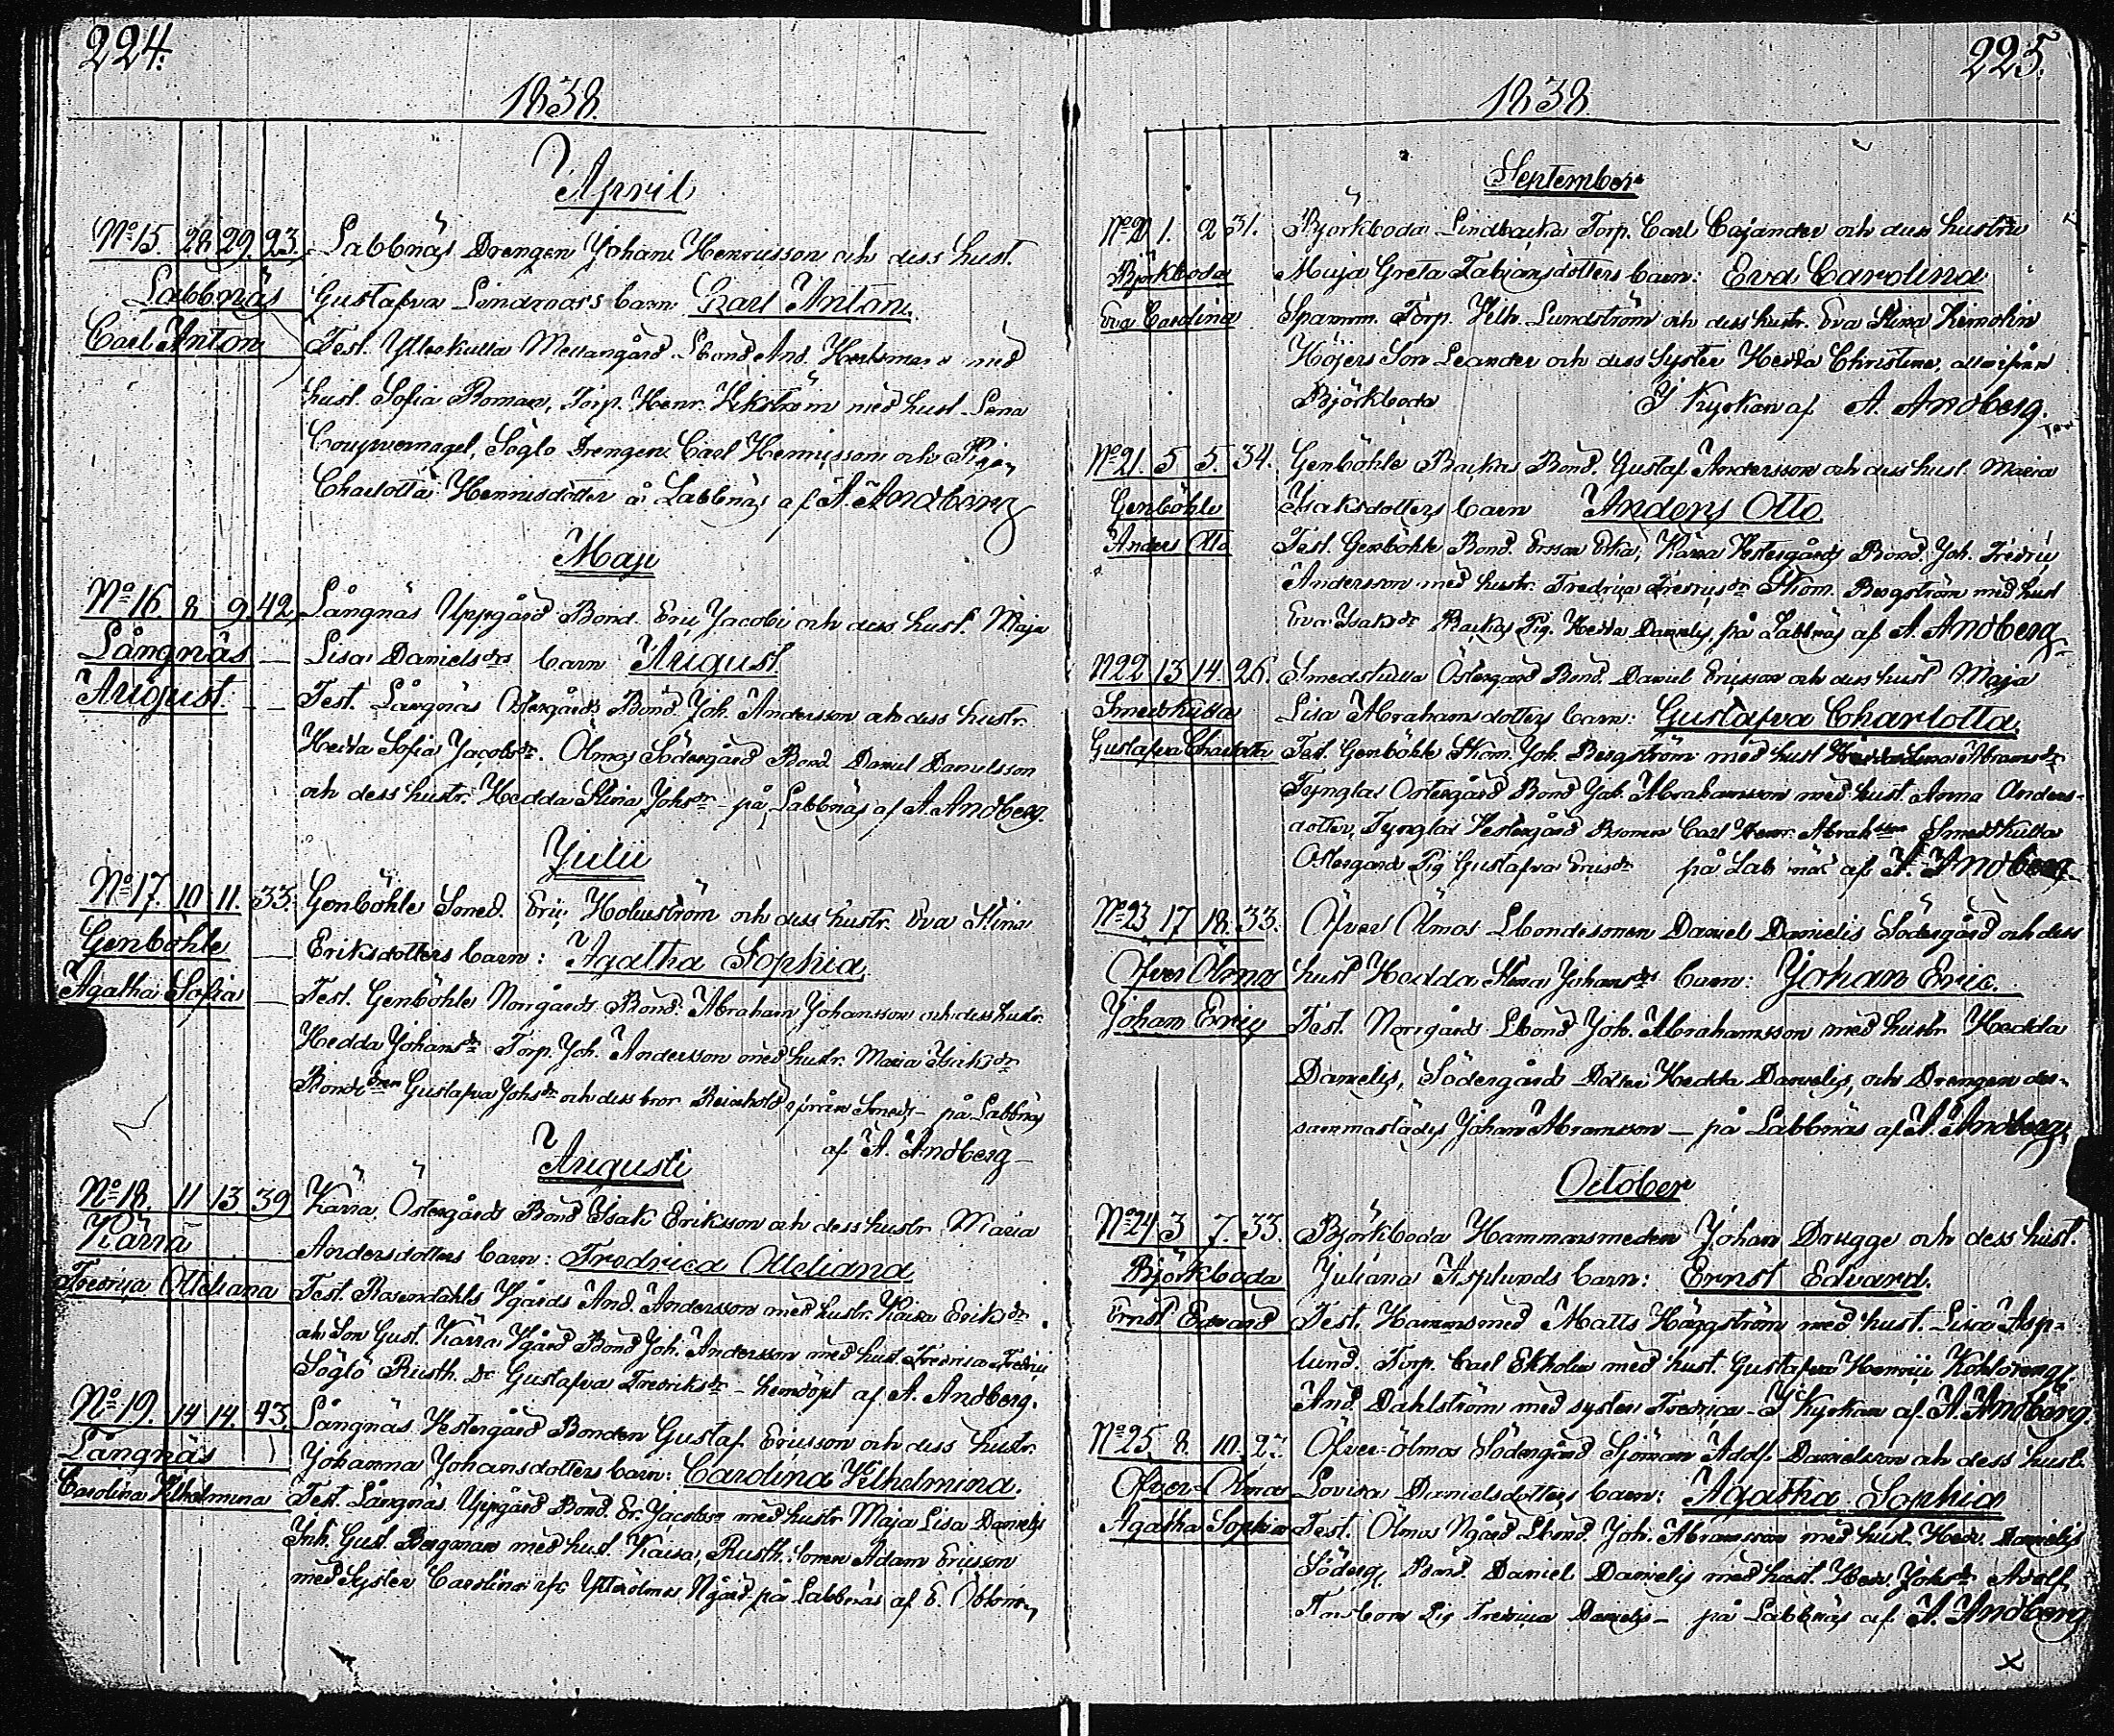 224.
1838.
April
No 15. 28. 29. 23. Labbnäs Drengen Johan Henricsson och dess hust.
Labbnäs Gustafva Lindroos's barn Carl Anton.
Carl Anton Test. Ytterkulla Mellangård Lbond And. med
hust. Sofia Roman, Torp. Henr. Vikström med hust. Lena
Söglö Drengen Carl Henricsson och Pigan
Charlotta Henricsdotter å Labbnäs af A. Andberg
Maji
No 16. 8. 9. 42. Långnäs Uppgård Bond. Eric Jacobi och dess hust. Maja
Långnäs Lisa Danielsdrs barn August
August. Test. Långnäs Östergårds Bond. Joh. Andersson och dess hustr.
Hedda Sofia Jacobsdr. Ölmos Södergård Bond Daniel Danielsson
och dess hustr. Hedda Stina Johsdr - på Labbnäs af A. Andberg.
Julii
No 17. 10 11. 33. Genböhle Smed. Eric Holmström och dess hustr. Eva Stina
Genböhle Eriksdotters barn: Agatha Sophia.
Agatha Sofia Test. Genböhle Norrgårds Bond. Abraham Johansson och dess hustr.
Hedda Johansdr Torp. Joh. Andersson med hustr. Maria Isaksdr
Gustafva Johsdr och dess bror Reinhold från Smeds - på Labbnäs
af A. Andberg
Augusti
No 18. 11 13 39 Kärra Östergårds Bond Isak Eriksson och dess hustr Maria
Kärra Andersdotters barn: Fredrica Otteliana
Fredrica Otteliana Test. Rosendahls Vgårds And. Andersson med hustr. Kaisa Eriksdr
och Son Gust. Kärra Vgård Bond Joh. Andersson med hust. Fredrica Fredrici
Söglö Rusth. Dr Gustafva Fredriksdr - hemdöpt af A. Andberg.
No 19. 14 14. 43. Långnäs Vestergård Bonden Gustaf Ericsson och dess hustr.
Långnäs Johanna Johansdotters barn: Carolina Vilhelmina.
Carolina Vilhelmina Test. Långnäs Uppgård Bond. Er. Jacobss. med hustr Maja Lisa Danielis
Inh. Gust. Bergman med hust. Kaisa, Rusth. Sonen Adam Ericsson
med Syster Carolina Ytterölmos Ngård på Labbnäs af E.
225.
1838.
September
No 20 1. 2 31. Björkboda Lindbacka Torp. Carl Cajander och dess hustru
Björkboda Maja Greta Fabiansdotters barn: Eva Carolina
Eva Carolina Spannm. Torp. Vilh. Lundström och dess hustr. Eva Stina
Höijers Son Leander och dess Syster Hedda Christina, alla ifrån
Björkboda I Kyrkan af A. Andberg.
No 21. 5 5. 34. Genböhle Backas Bond. Gustaf Andersson och dess hust. Maria
Genböhle Isaksdotters barn Anders Otto
Anders Otto Test. Genböhle Bond. Kärra Vestergårds Bond Joh. Fredric
Andersson med hustr. Fredrica Fredricsdr Skom. Bergström med hust
Eva Isaksdr Backas Pig. Hedda Danielis, på Labbnäs af A. Andberg
No 22 13 14. 26. Smedskulla Östergård Bond. Daniel Ericsson och dess hust Maja
Smedskulla Lisa Abrahamsdotters barn: Gustafva Charlotta.
Gustafva Charlotta Test. Genböhle Skom. Joh. Bergström med hust
Tynglax Östergård Bond Jak. Abrahamsson med hust. Anna Anders-
dotter, Tynglax Vestergård Bsonen Carl Henr. Abrahsson Smedskulla
Östergård Pig Gustafva Ericsdr på Labbnäs af A. Andberg
No 23 17 18. 33. Öfver Ölmos Lbondesonen Daniel Danielis Södergård och dess
Öfver Ölmos hust Hedda Stina Johansdrs barn: Johan Eric.
Johan Eric Test. Norrgårds Lbond Joh. Abrahamsson med hustr Hedda
Danielis, Södergårds Dotter Hedda Danielis, och Drengen der-
sammastädes Johan Abramsson - på Labbnäs af A. Andberg.
October
No 24 3 7. 33. Björkboda Hammarsmeden Johan Drugge och dess hust.
Björkboda Juliana Asplunds barn: Ernst Edvard.
Ernst Edvard Test. Hammsmed Matts Häggström med hust. Lisa Asp-
lund. Torp. Carl Ekholm med hust. Gustafva Henrici
And. Dahlström med syster Fredrica - I Kyrkan af A. Andberg.
No 25 8. 10. Öfver-Ölmos Södergård Sjöman Adolf Danielsson och dess hust.
Öfver-Ölmos Lovisa Danielsdotters barn: Agatha Sophia
Agatha Sophia Test. Ölmos Ngård Lbond. Joh. Abramsson med hust. Hedv. Danielis
Söderg. Bond. Daniel Danielis med hust. Hedv. Johsdr Adolf
Pig Fredrica Danielis - på Labbnäs af A. Andberg
x